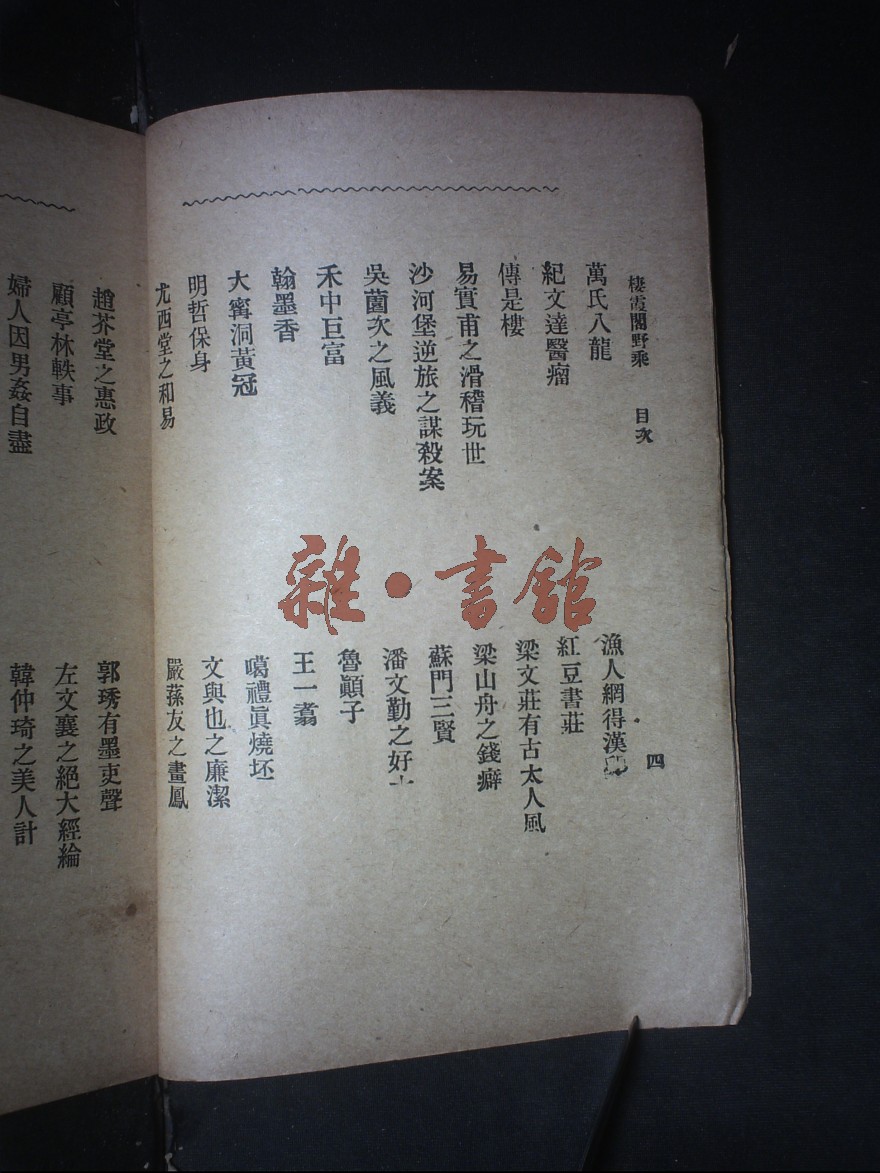 棲霞閣野乘　目次
四
萬氏八龍
漁人網得漢
紀文達醫瘤
紅豆書莊
傳是樓
梁文莊有古大人風
易實甫之滑稽玩世
梁山舟之錢癖
沙河堡逆旅之謀殺案
蘇門三賢
吳薗次之風義
潘文勤之好
禾中巨富
魯顚子
翰墨香
王一翥
大寗洞黃冠
噶禮眞燒坯
明哲保身
文與也之廉潔
尤西堂之和易
嚴蓀友之畫鳳
趙芥堂之惠政
郭琇有墨吏聲
顧亭林軼事
左文襄之絕大經綸
婦人因男姦自盡
韓仲琦之美人計
雜·書館